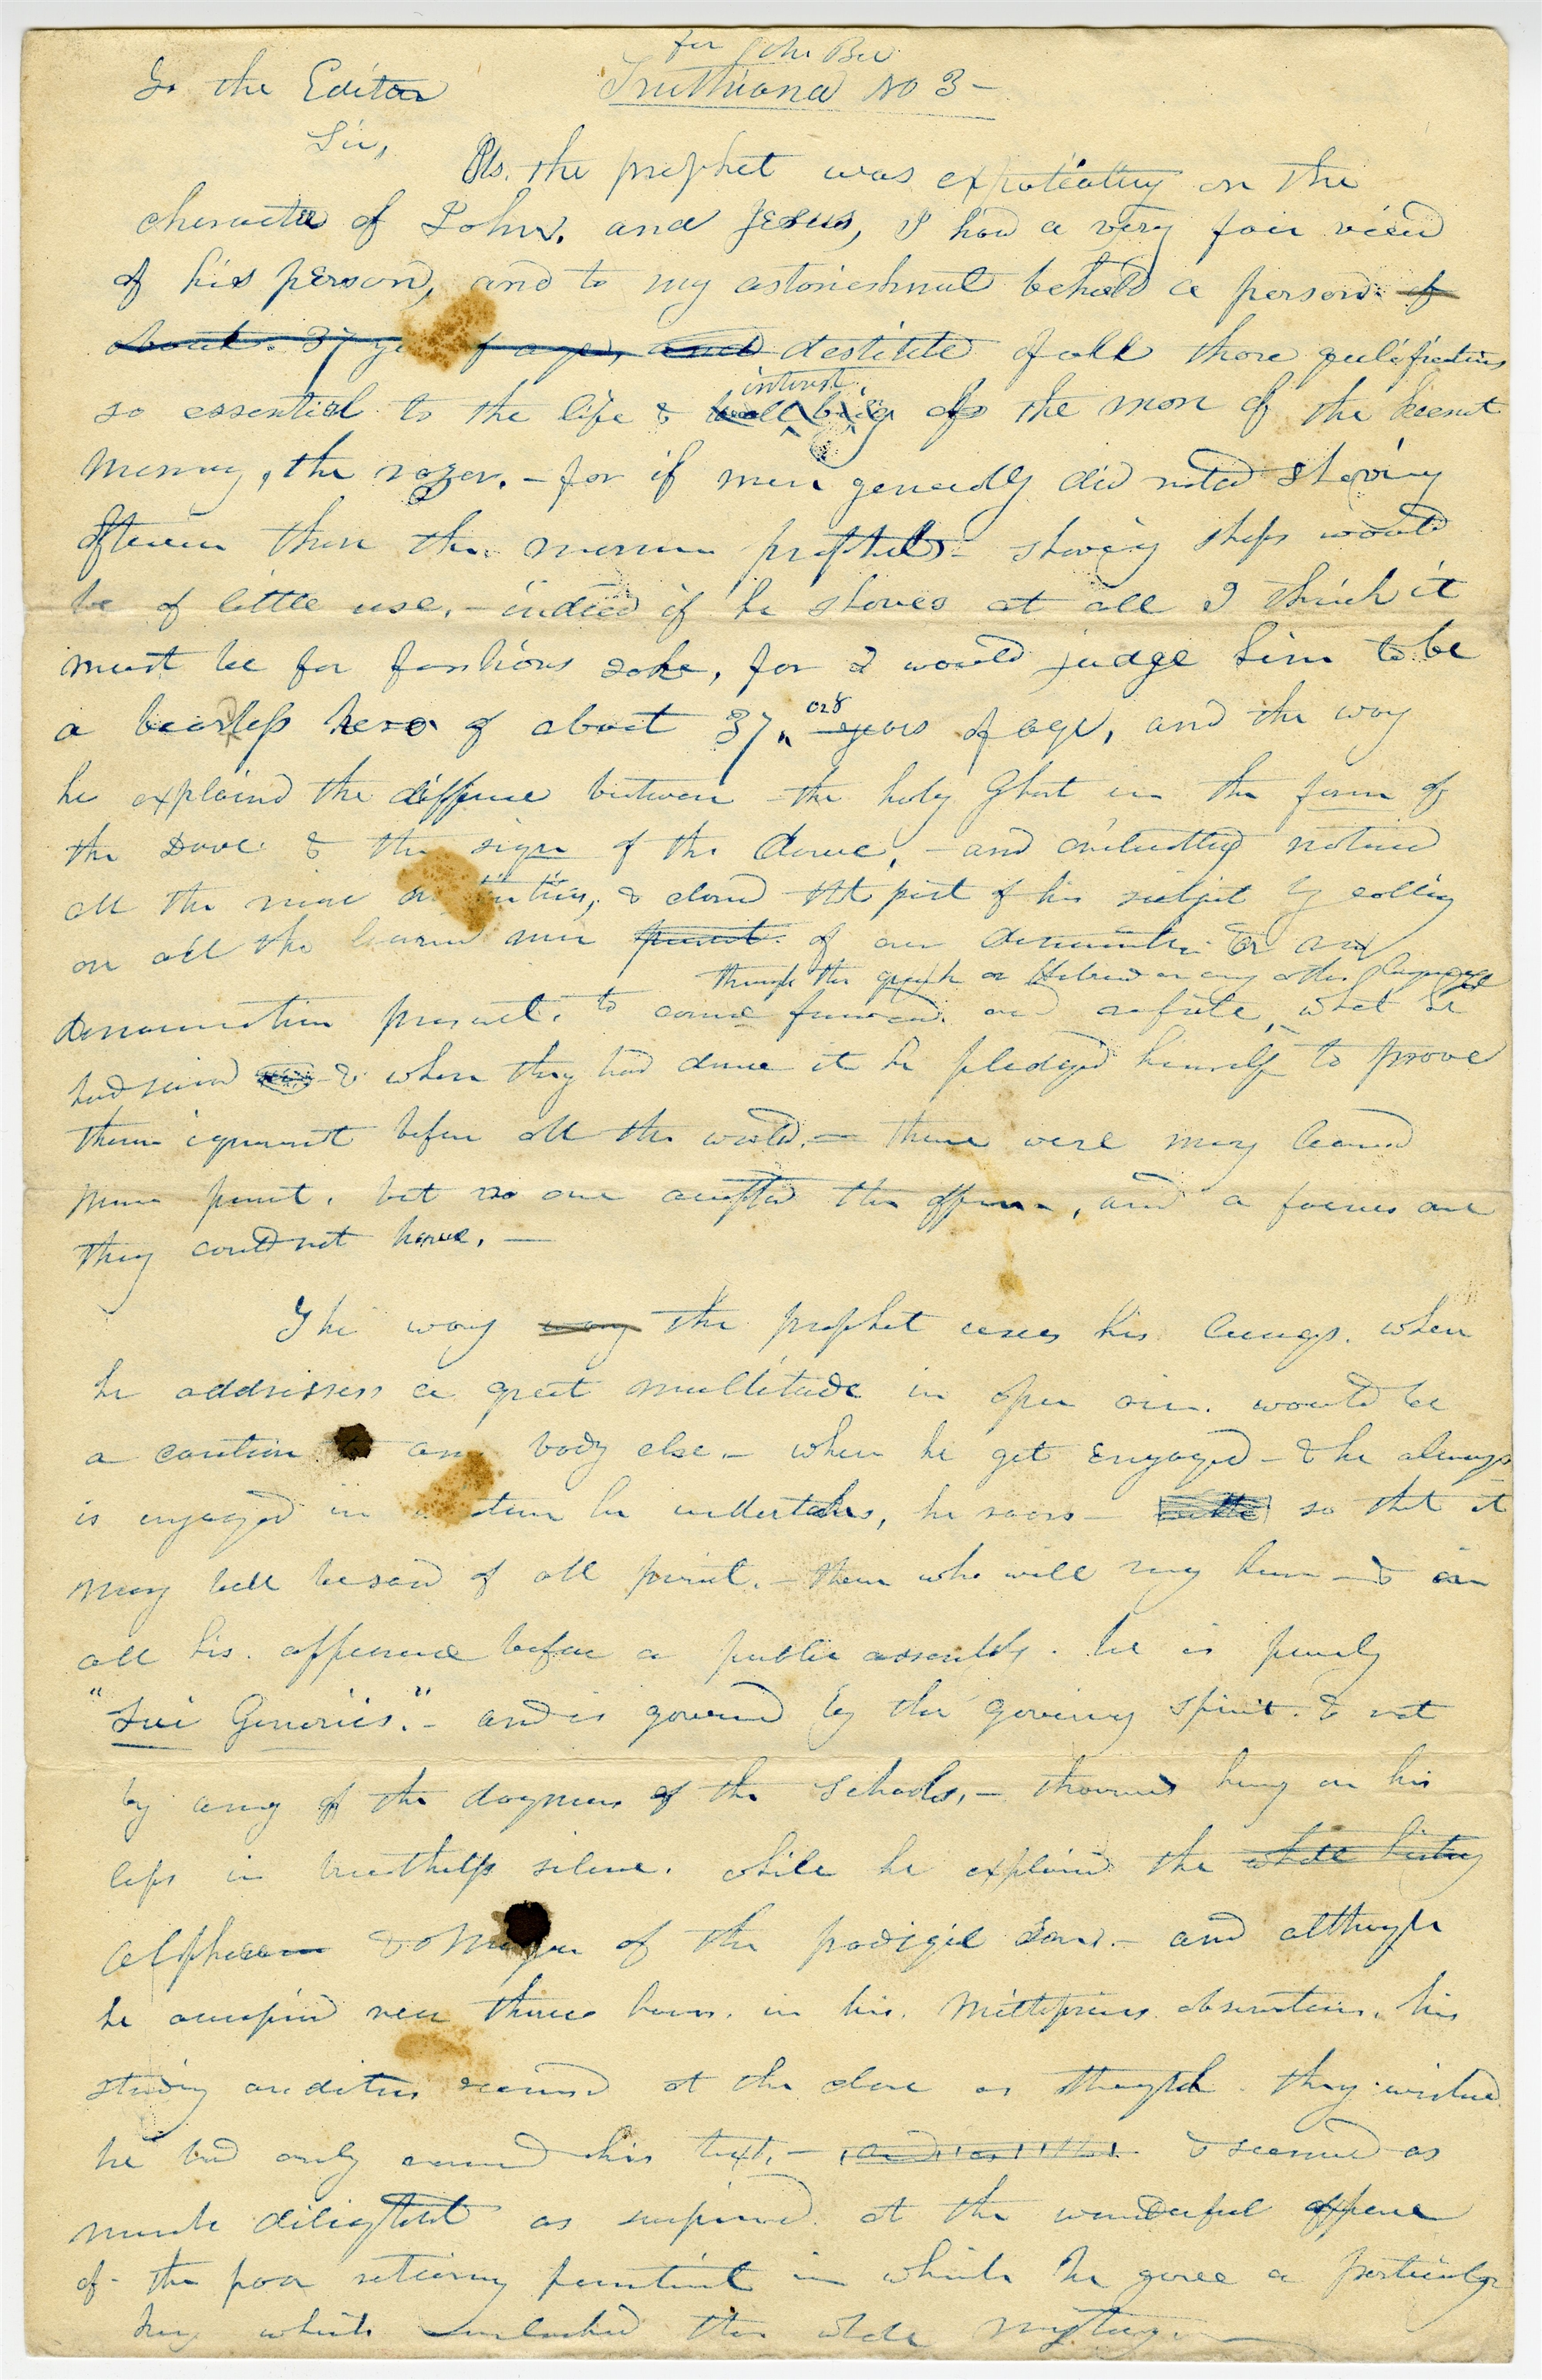 for John Bee
To the Editor Truthiana No 3 -
Sir,
As the prophet was expatiating on the
character of John, and Jesus, I had a very fair view
of his person, and to my astonishment beheld a person of
about 37 ye of age, and destitute of all those qualifications
so essential to the life & well being interest of the man of the keenest
memory, the razor. - for if men generally did not shaving
oftener than the mormon prophet - shaving shops would
be of little use, - indeed if he shaves at all I think it
must be for fashions sake, for I would judge him to be
a beardless hero of about 37, or 8 years of age, and the way
he explaind the difference between the holy Ghost in the form of
the Dove & the sign of the dove, - and critically noticed
all the nice & closed that part of his subject by calling
on all the learned men present of our denomination or any
through the greek or Hebrew or any other language
denomination present, to come forward and refute, what he
had said & when they had done it he pledged himself to prove
them ignorant before all the world. - there were many learned
men present, but no one accepted the offer, and a fairer one
they could not have. -
The way way the prophet uses his lungs. when
he addresses a great multitude in open air. would be
a caution any body else. - when he get engaged - & he always
is engaged in he undertakes, he roars - so that it
may well be said of all present, - them who will may hear - & in
all his appearance before a public assembly. he is purely
"Sui Generies." - and is governd by the governing spirit. & not
by any of the dogmas of the schools, - thousands hung on his
lips in breathless silence. while he explaind the whole history
Alpha & Omega of the prodigal son. - and although
he occupied near three hours. in his. Mellifluous observations, his
studing auditors seemed at the close as though they wished
he had only named his text, - & seemed as
much delighted as surprised at the wonderful appearance
of the poor returning penitent in which he gave a particular
key which unlocked the whole mystery